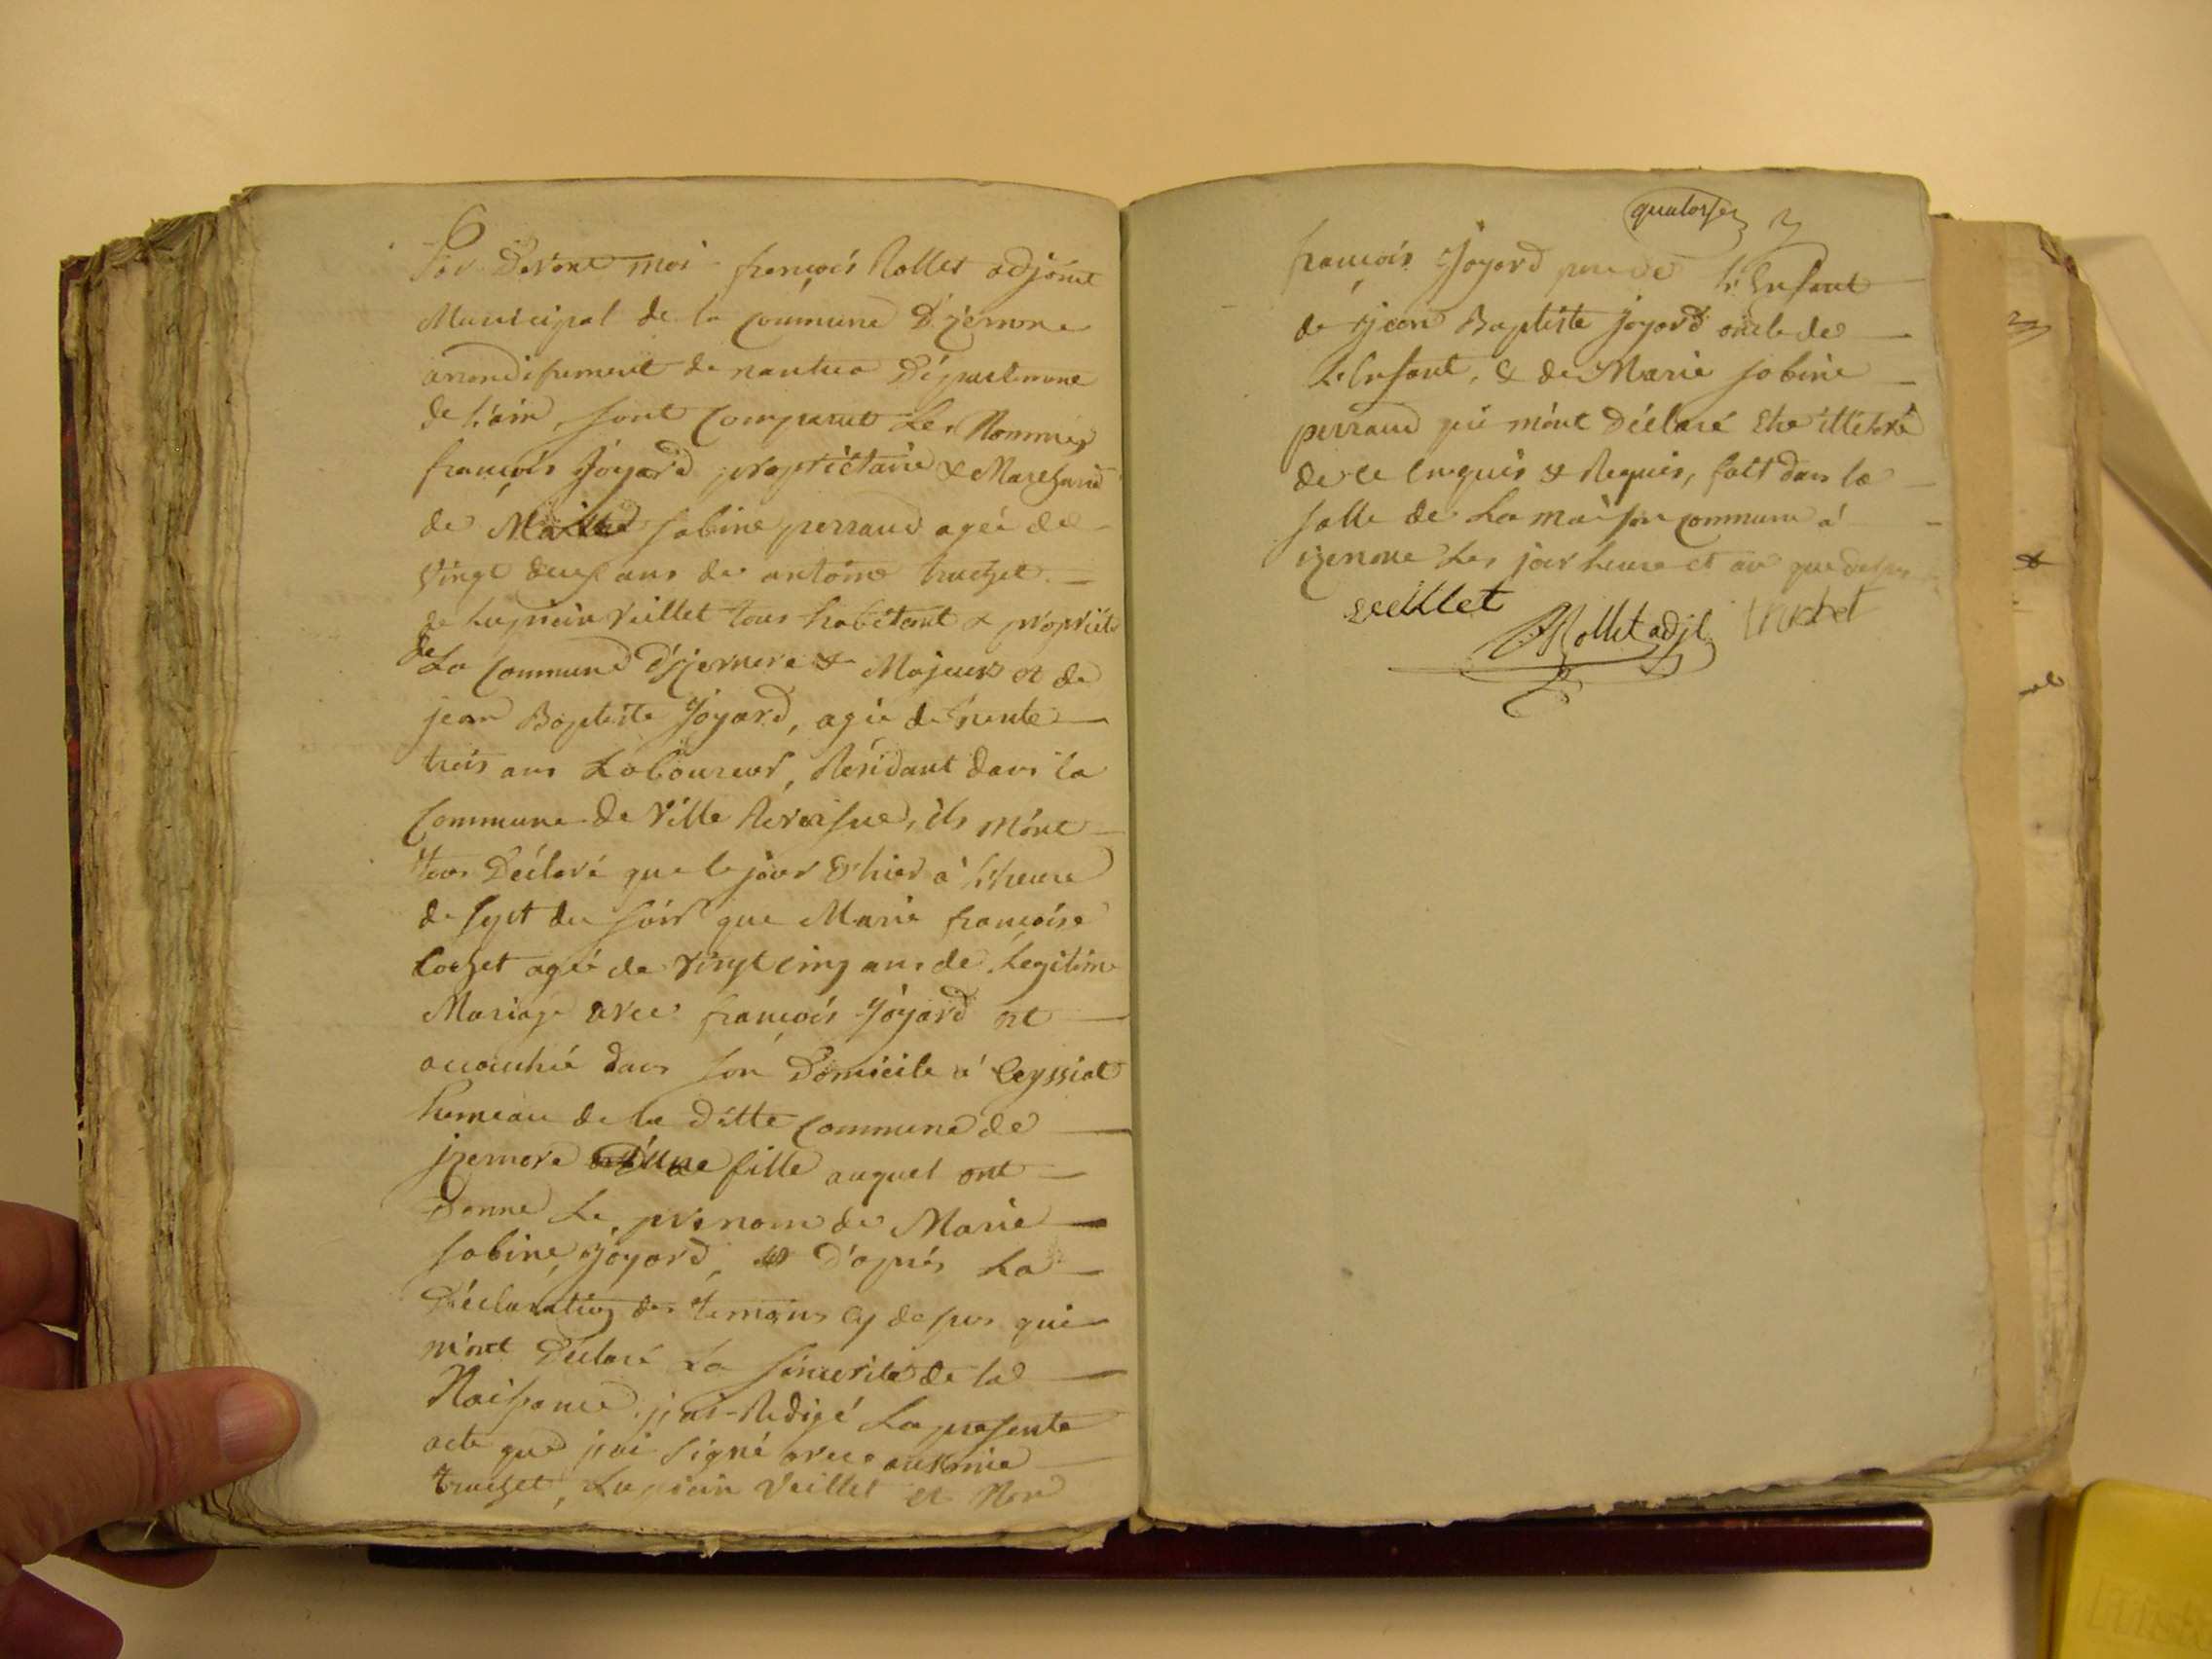 6
Par Devant moi françois Rollet adjoint
Municipal de la Commune D'jzernore
arrondissement de nantua Département
de l'ain, sont Comparut Les Nommes
françois Joyard propriétaire & Marchand
de Marie Sabine perraud agée de
Vingt deux ans de antoine truchet
de Lupicin Veillet tous habitant & propriet
de La Commune D'jzernore & Majeurs et de
jean Baptiste Joyard, agée de trente
trois ans Laboureur, Résidant dans la
Commune de Ville Reversure, ils m'ont
tous Déclaré que le jour d'hier à l'heure
de sept du soir que Marie françoise
Cochet agée de Vingt cinq ans de Legitime
Mariage avec françois Joyard est
accouchée dans son Domicile à Ceyssiat
hameau de la ditte Commune de
jzernore d'une fille auquel ont
Donné Le prénom de Marie
Sabine Joyard, & D'après La
Déclaration des temoins Cy dessus qui
m'ont Déclaré La sincerite de la
Naissance j'ai Redigé La presente
acte que j'ai signé avec antoine
truchet, Lupicin Veillet et Non
quatorze
françois Joyard pere de L'Enfant
de jean Baptiste Joyard oncle de
L'Enfant, & de Marie Sabine
perraud qui m'ont Déclaré Etre illétéré
de ce Enquis & Requis, fait dans la
salle de La maison Commune à
izernore Les jour heure et an que dessus
veillet
Rollet adjt truchet